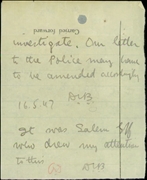 Carried forward
investigate. Our letter
to the Police may have
to be amended accordingly
DLB
16.5.47
It was Salem Eff
who drew my attention
to this
DLB